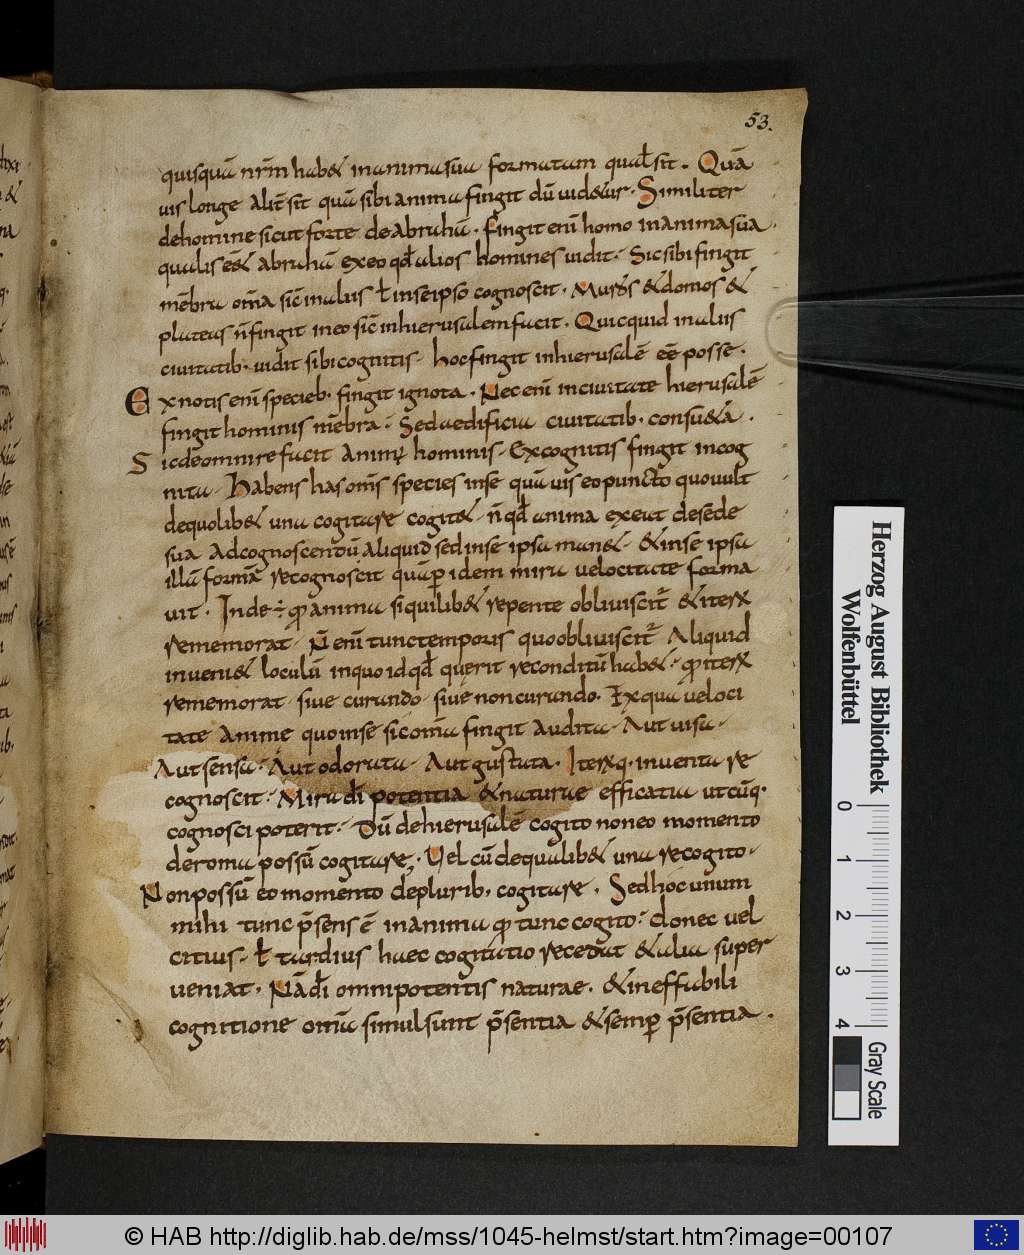 53.
quisquā nr̄m hab& inanimasua formatam qual̄ sit. Quā
uis longe alit̄ sit quā sibi anima fingit dū uid&ur. Similiter
dehomine sicut forte de abrahā. Fingit enī homo in anima sua.
qualis e& abrahā exeo qd̄ alios homines uidit. Sic sibi fingit
mēbra om̄a sic̄ in aliis ł inseipso cognoscit. Muros &domos &
plateas n̄ fingit in eo sic̄ inhierusalem facit. Quicquid in aliis
ciuitatib. uidit sibi cognitis. hoc fingit inhierusalē eē posse.
Ex notis enī specieb. fingit ignota. Nec enī in ciuitate hierusalē
fingit hominis mēbra. Sed aedificia ciuitatib. consu&a.
Sic de omni re facit animę hominis. Ex cognitis fingit incog
nita. Habens has om̄s species in se quā uis eo puncto quo uult
de quolib& una cogitare cogit&. n̄ qd̄ anima exeat de sede
sua ad cognoscendū aliquid sed in se ipsa man&. & in se ipsa
illā formā recognoscit quāp idem mira uelocitate forma
uit. Inde ÷ qđ anima si quilib& repente obliuiscit̄ & iterū
rememorat. N̄ enī tunc temporis quo obliuiscit̄ Aliquid
inueni& loculū in quo id qd̄ querit reconditū hab&. qđ iterū
rememorat. siue curando. siue non curando. Ex qua ueloci
tate anime quo in se sic om̄a fingit audita. Aut uisa.
Aut sensa. Aut odorata. Aut gustata. Iterūq. inuenta re
cognoscit. Mira dī potentia & naturae efficatia utcūq.
cognosci poterit. Dū dehierusalē cogito non eo momento
de roma possū cogitare; Vel cū de qualib& una re cogito.
Non possū eo momento de plurib; cogitare. Sed hoc unum
mihi tunc p̄sens ē in anima qđ tunc cogito. donec uel
citius. ł tardius haec cogitatio recedat & alia super
ueniat. Nā dī omnipotentis naturae. & ineffabili
cognitione om̄a simul sunt p̄sentia & semp p̄sentia.
Herzog August Bibliothek
Wolfenbüttel
0 1 2 3 4
Gray Scale
© HAB http://diglib.hab.de/mss/1045-helmst/start.htm?image=00107